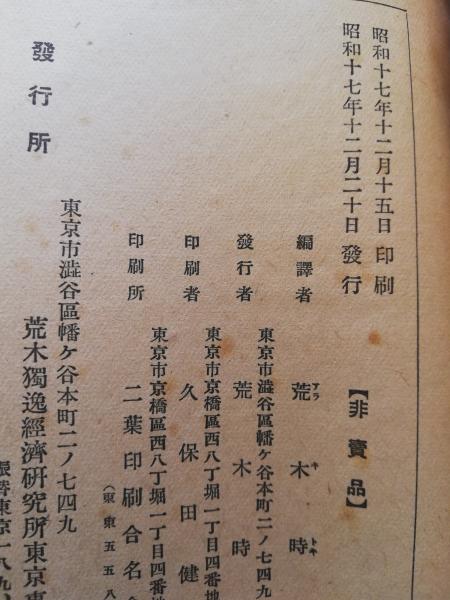 昭和十七年十二月十五日 印刷
昭和十七年十二月二十日 發行
【非賣品】
編譯者 荒木時
アラ キ トキ
東京市澁谷區幡ヶ谷本町二ノ七四九
發行者 荒木時
東京市京橋區西八丁堀一丁目四番地
印刷者 久保田健
東京市京橋區西八丁堀一丁目四番地
印刷所 二葉印刷合名
(東東五五八
發行所
東京市澁谷區幡ヶ谷本町二ノ七四九
荒木獨逸經濟研究所東京
振替東京一八九